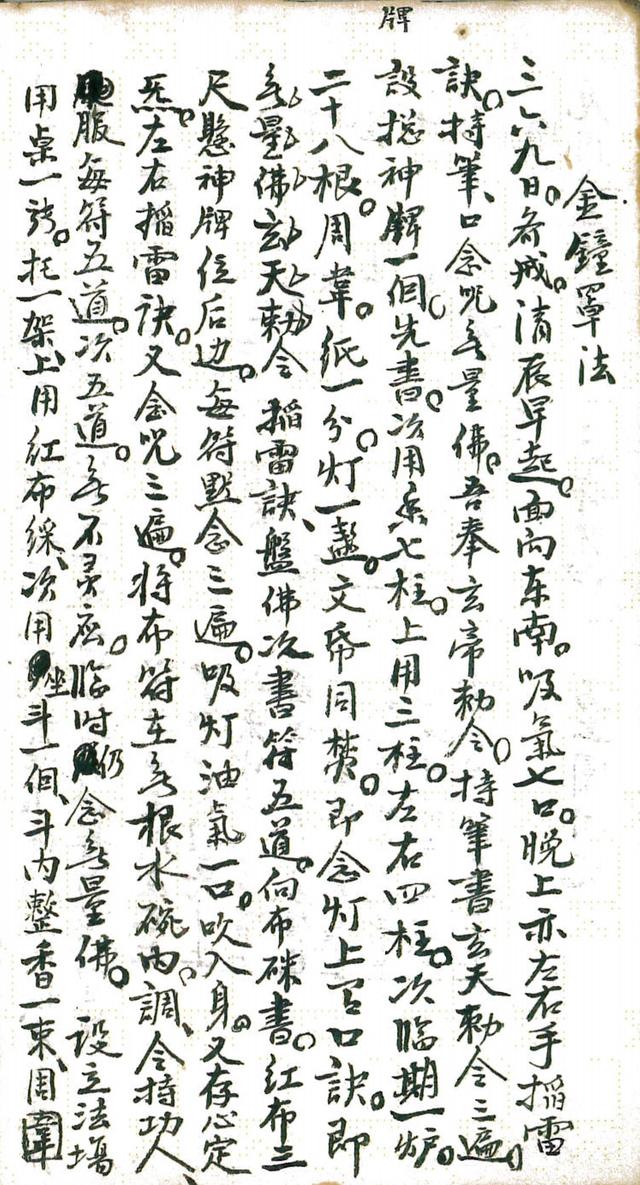 牌
金鐘罩法
三六九日。斋戒。清辰早起。面向东南。吸氣七口。晚上亦左右手搯雷
訣。持筆、口念咒无量佛。吾奉玄帝勅令。持筆書玄天勅令三遍。
設搃神牌一個。先書。次用香七柱。上用三柱。左右四柱。次臨期一炉。
二十八根。周韋。纸一分。灯一盏。文帋同焚。即念灯上口訣。即
无量佛玄天勅令搯雷訣、盤佛次書符五道。向布硃書。红布三
尺懸神牌位后边。每符默念三遍。吸灯油氣一口。吹入身。又存心定
炁。左右搯雷訣。又念咒三遍。将布符在无根水碗内。調、令持功人、
服每符五道。次五道。无不灵应。临时仍念无量佛。 設立法場
用桌一張。托一架、上用红布綵、次用坐斗一個、斗内整香一束、周韋